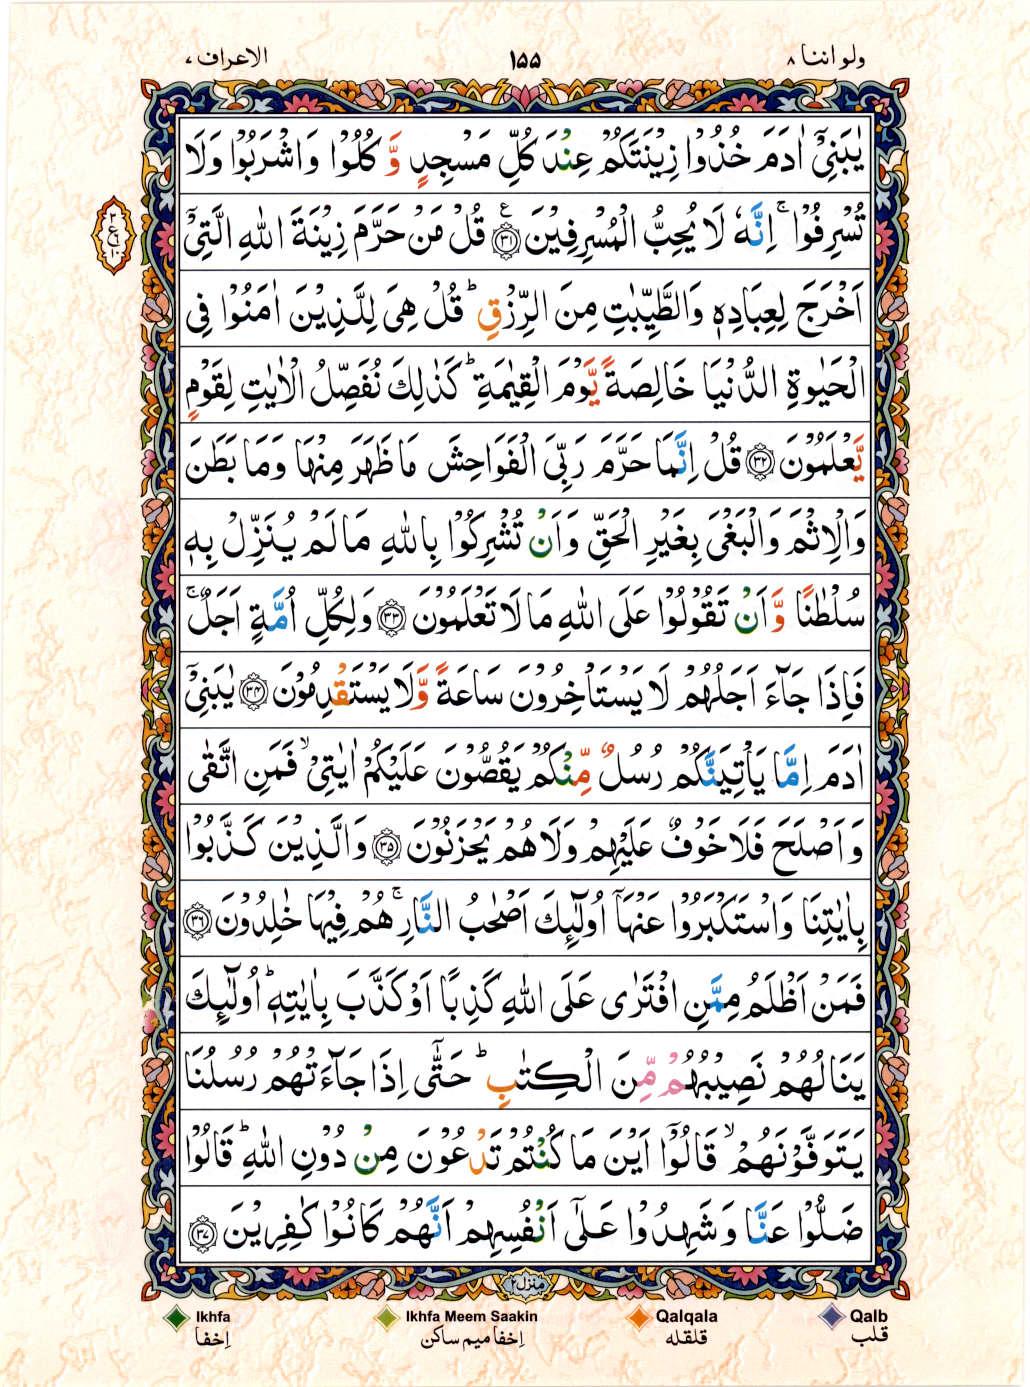 ولو اننا ۸ ۱۵۵ الاعراف ۷
يٰبَنِيْٓ اٰدَمَ خُذُوْا زِيْنَتَكُمْ عِنْدَ كُلِّ مَسْجِدٍ وَّ كُلُوْا وَاشْرَبُوْا وَلَا
تُسْرِفُوْا ۚ اِنَّهٗ لَا يُحِبُّ الْمُسْرِفِيْنَ ۳۱ ع قُلْ مَنْ حَرَّمَ زِيْنَةَ اللّٰهِ الَّتِيْٓ
اَخْرَجَ لِعِبَادِهٖ وَالطَّيِّبٰتِ مِنَ الرِّزْقِ ؕ قُلْ هِيَ لِلَّذِيْنَ اٰمَنُوْا فِي
الْحَيٰوةِ الدُّنْيَا خَالِصَةً يَّوْمَ الْقِيٰمَةِ ؕ كَذٰلِكَ نُفَصِّلُ الْاٰيٰتِ لِقَوْمٍ
يَّعْلَمُوْنَ ۳۲ قُلْ اِنَّمَا حَرَّمَ رَبِّيَ الْفَوَاحِشَ مَا ظَهَرَ مِنْهَا وَمَا بَطَنَ
وَالْاِثْمَ وَالْبَغْيَ بِغَيْرِ الْحَقِّ وَاَنْ تُشْرِكُوْا بِاللّٰهِ مَا لَمْ يُنَزِّلْ بِهٖ
سُلْطٰنًا وَّاَنْ تَقُوْلُوْا عَلَى اللّٰهِ مَا لَا تَعْلَمُوْنَ ۳۳ وَلِكُلِّ اُمَّةٍ اَجَلٌ ۚ
فَاِذَا جَآءَ اَجَلُهُمْ لَا يَسْتَاْخِرُوْنَ سَاعَةً وَّلَا يَسْتَقْدِمُوْنَ ۳۴ يٰبَنِيْٓ
اٰدَمَ اِمَّا يَاْتِيَنَّكُمْ رُسُلٌ مِّنْكُمْ يَقُصُّوْنَ عَلَيْكُمْ اٰيٰتِيْ ۙ فَمَنِ اتَّقٰى
وَاَصْلَحَ فَلَا خَوْفٌ عَلَيْهِمْ وَلَا هُمْ يَحْزَنُوْنَ ۳۵ وَالَّذِيْنَ كَذَّبُوْا
بِاٰيٰتِنَا وَاسْتَكْبَرُوْا عَنْهَآ اُولٰٓئِكَ اَصْحٰبُ النَّارِ ۚ هُمْ فِيْهَا خٰلِدُوْنَ ۳۶
فَمَنْ اَظْلَمُ مِمَّنِ افْتَرٰى عَلَى اللّٰهِ كَذِبًا اَوْ كَذَّبَ بِاٰيٰتِهٖ ؕ اُولٰٓئِكَ
يَنَالُهُمْ نَصِيْبُهُمْ مِّنَ الْكِتٰبِ ؕ حَتّٰٓى اِذَا جَآءَتْهُمْ رُسُلُنَا
يَتَوَفَّوْنَهُمْ ۙ قَالُوْٓا اَيْنَ مَا كُنْتُمْ تَدْعُوْنَ مِنْ دُوْنِ اللّٰهِ ؕ قَالُوْا
ضَلُّوْا عَنَّا وَشَهِدُوْا عَلٰٓى اَنْفُسِهِمْ اَنَّهُمْ كَانُوْا كٰفِرِيْنَ ۳۷
منزل ۲
Ikhfa Ikhfa Meem Saakin Qalqala Qalb
اِخفا اِخفا میم ساکن قلقله قلب